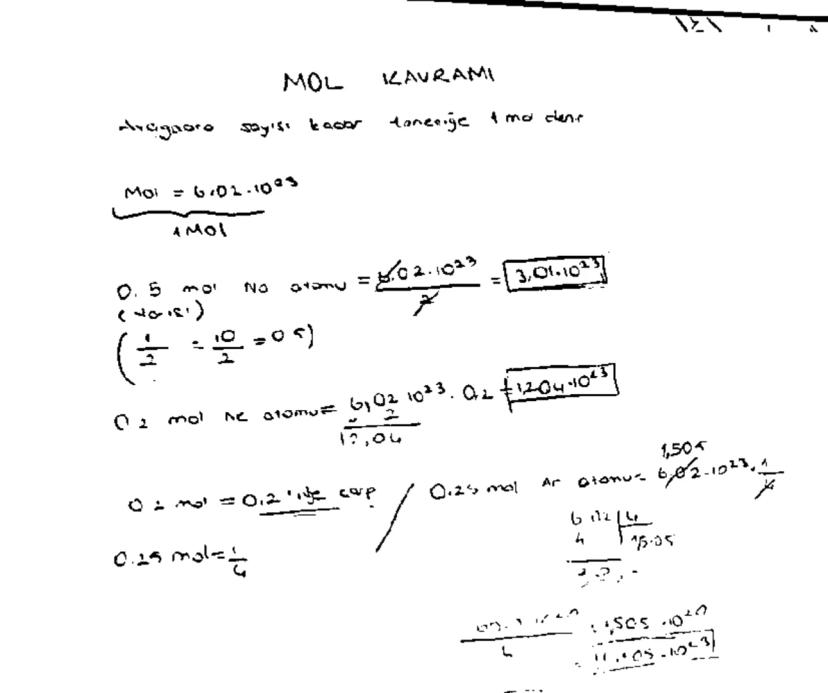 MOL KAVRAMI
Avogadro sayısı kadar taneciğe 1 mol denir
Mol = 6,02.10²³
1 Mol
0.5 mol Na atomu = 6,02.10²³ / 2 = 3,01.10²³
(Yarısı)
(1/2 = 10/2 = 0 5)
0 2 mol Ne atomu = 6,02 10²³. 0,2 = 1,204.10²³
2
12,04
0 2 mol = 0.2 'ile çarp / 0.25 mol Ar atomu = 6,02.10²³. 1/4
1,505
0.25 mol = 1/4